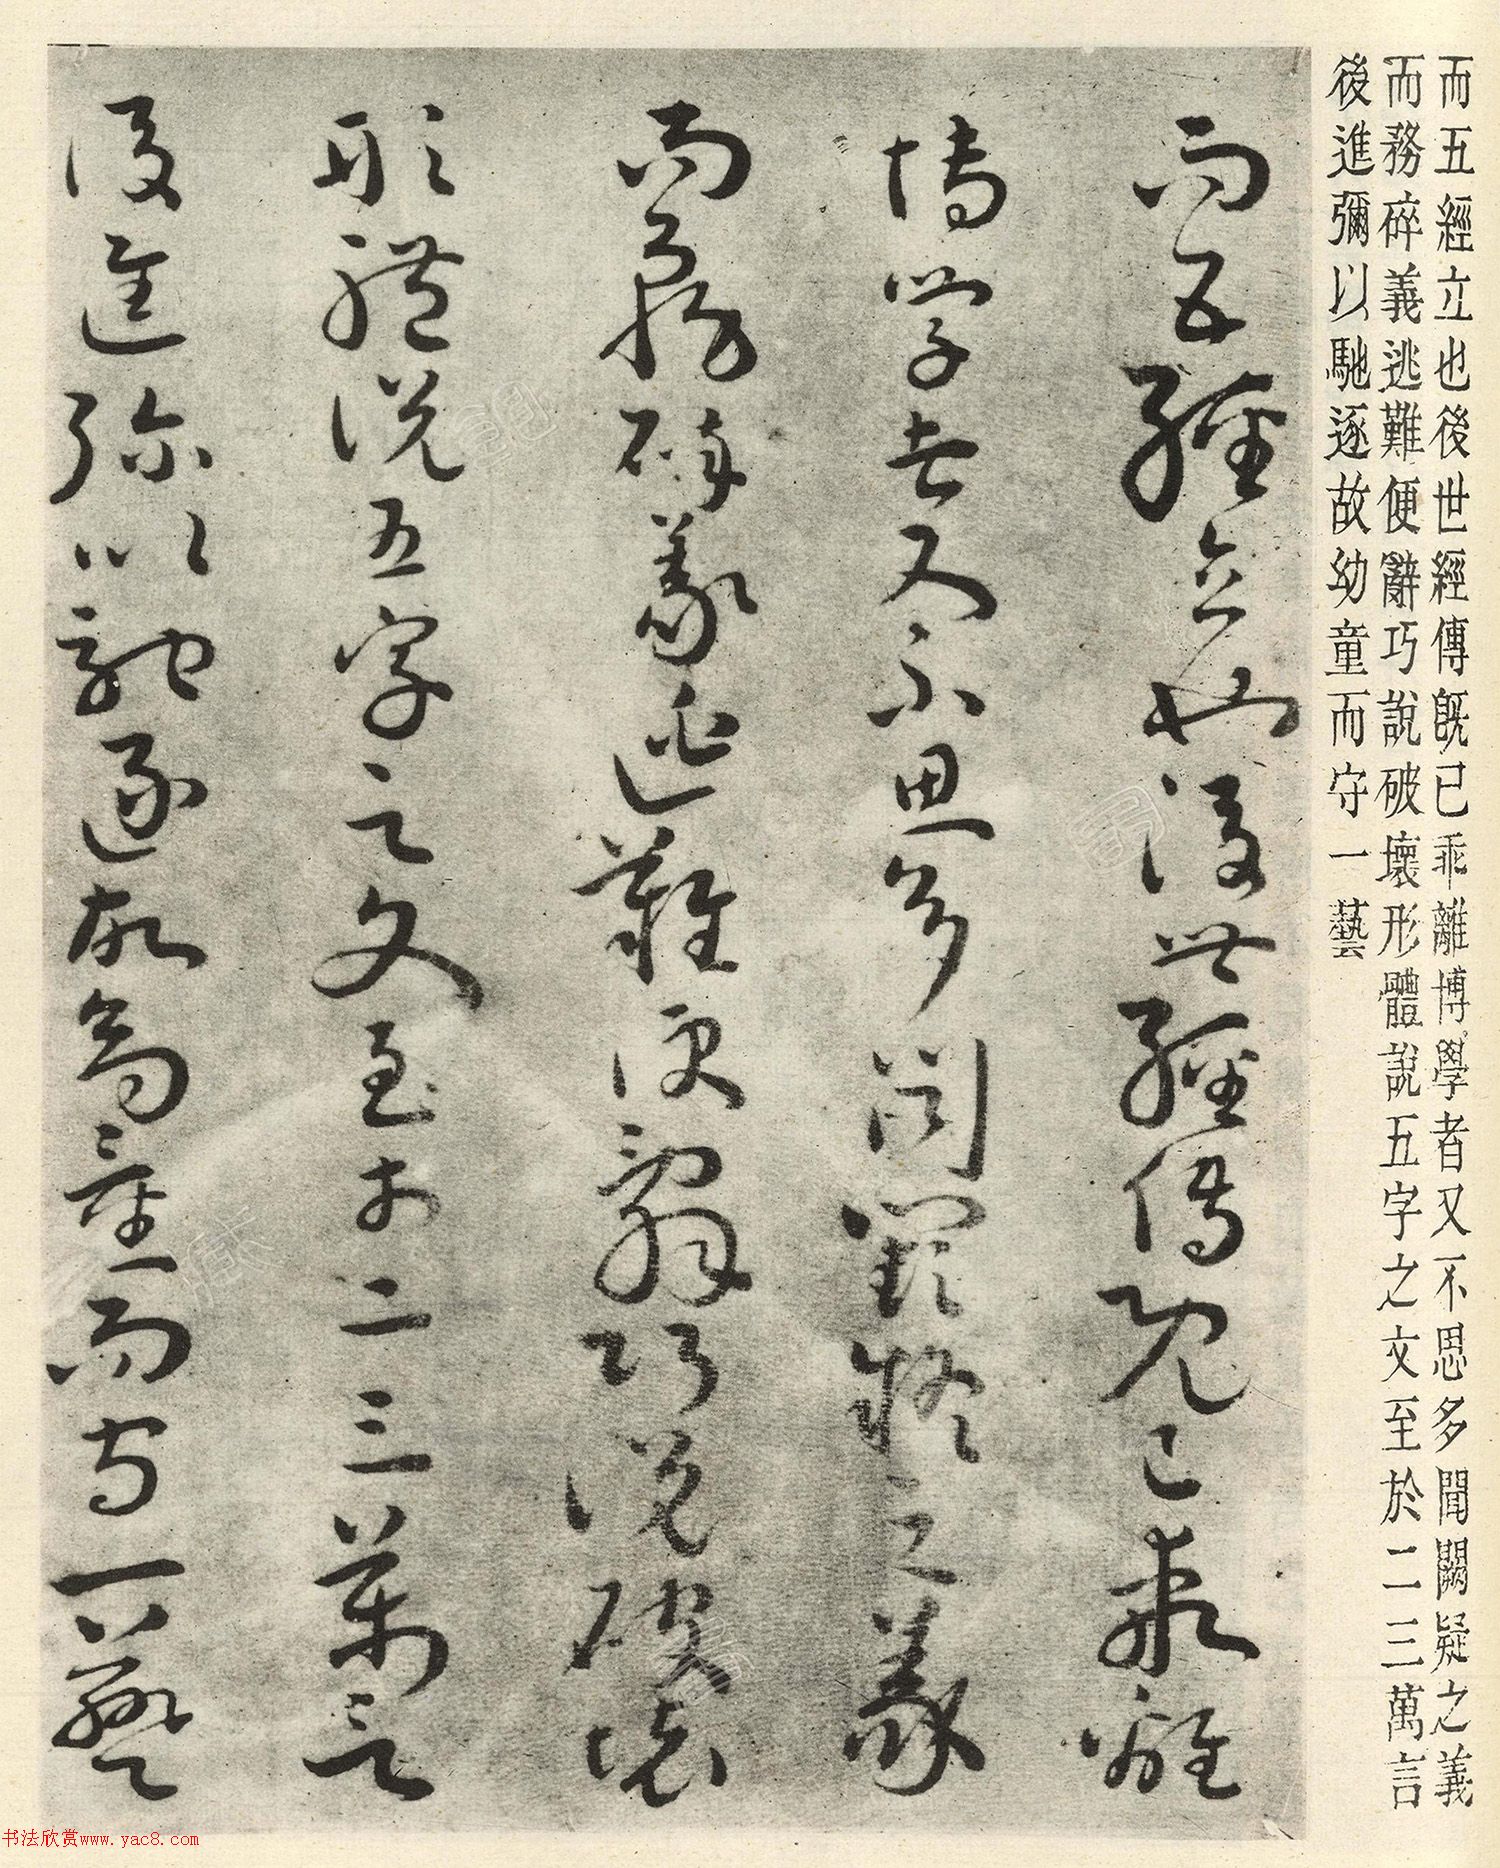 而五經立也後世經傳既已乖離博學者又不思多聞闕疑之義
而務碎義逃難便辭巧說破壞形體說五字之文至於二三萬言
後進彌以馳逐故幼童而守一藝
而五經立也後世經傳既已乖離
博學者又不思多聞闕疑之義
而務碎義逃難便辭巧說破壞
形體說五字之文至於二三萬言
後進彌以馳逐故幼童而守一藝
书法欣赏www.yac8.com